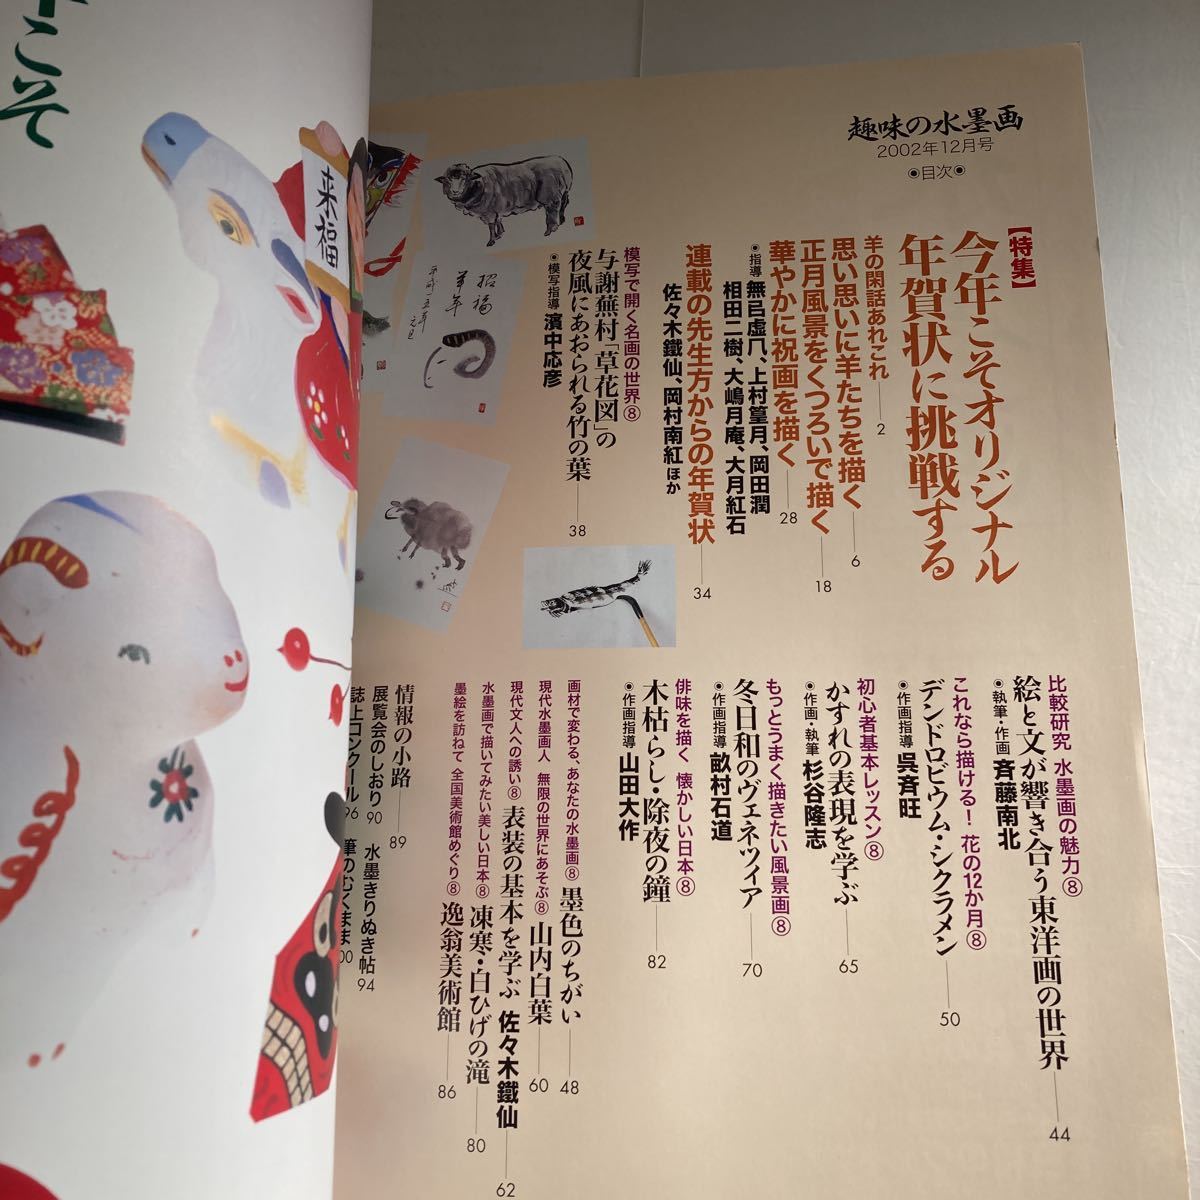 趣味の水墨画
2002年12月号
◉目次◉
【特集】
今年こそオリジナル
年賀状に挑戦する
羊の閑話あれこれ 2
思い思いに羊たちを描く 6
正月風景をくつろいで描く 18
華やかに祝画を描く 28
◉指導 無呂虚凡、上村篁月、岡田潤
相田二樹、大嶋月庵、大月紅石
連載の先生方からの年賀状 34
佐々木鐵仙、岡村南紅ほか
模写で開く名画の世界⑧
与謝蕪村「草花図」の
夜風にあおられる竹の葉 38
◉模写指導 濱中応彦
比較研究 水墨画の魅力⑧
絵と文が響き合う東洋画の世界 44
◉執筆・作画 斉藤南北
これなら描ける! 花の12か月⑧
デンドロビウム・シクラメン 50
◉作画指導 呉斉旺
初心者基本レッスン⑧
かすれの表現を学ぶ 65
◉作画・執筆 杉谷隆志
もっとうまく描きたい風景画⑧
冬日和のヴェネツィア 70
◉作画指導 畝村石道
俳味を描く 懐かしい日本⑧
木枯らし・除夜の鐘 82
◉作画指導 山田大作
画材で変わる、あなたの水墨画⑧ 墨色のちがい 48
現代水墨画人 無限の世界にあそぶ⑧ 山内白葉 60
現代文人への誘い⑧ 表装の基本を学ぶ 佐々木鐵仙 62
水墨画で描いてみたい美しい日本⑧ 凍寒・白ひげの滝 80
墨絵を訪ねて 全国美術館めぐり⑧ 逸翁美術館 86
情報の小路 89
展覧会のしおり 90 水墨きりぬき帖 94
誌上コンクール 96 筆のむくまま
来福
招福
羊年
平成一五年
元旦
こそ